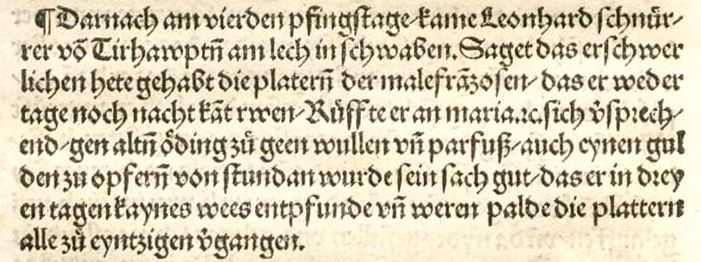 ¶ Darnach am vierden pfingstage/kame Leonhard schnür⸗
rer võ Tirhawptñ am lech in schwaben. Saget das er schwer
lichen hete gehabt die platerñ der malefrãzosen/ das er weder
tage noch nacht kãt rwen/ Rüffte er an maria.ꝛc.sich v̉sprech⸗
end/gen altñ öding zů geen wullen vñ parfuß/auch eynen gul
den zu opferñ von stundan wurde sein sach gut/das er in drey
en tagen kaynes wees entpfunde vñ weren palde die plattern
alle zů eyntzigen v̉gangen.